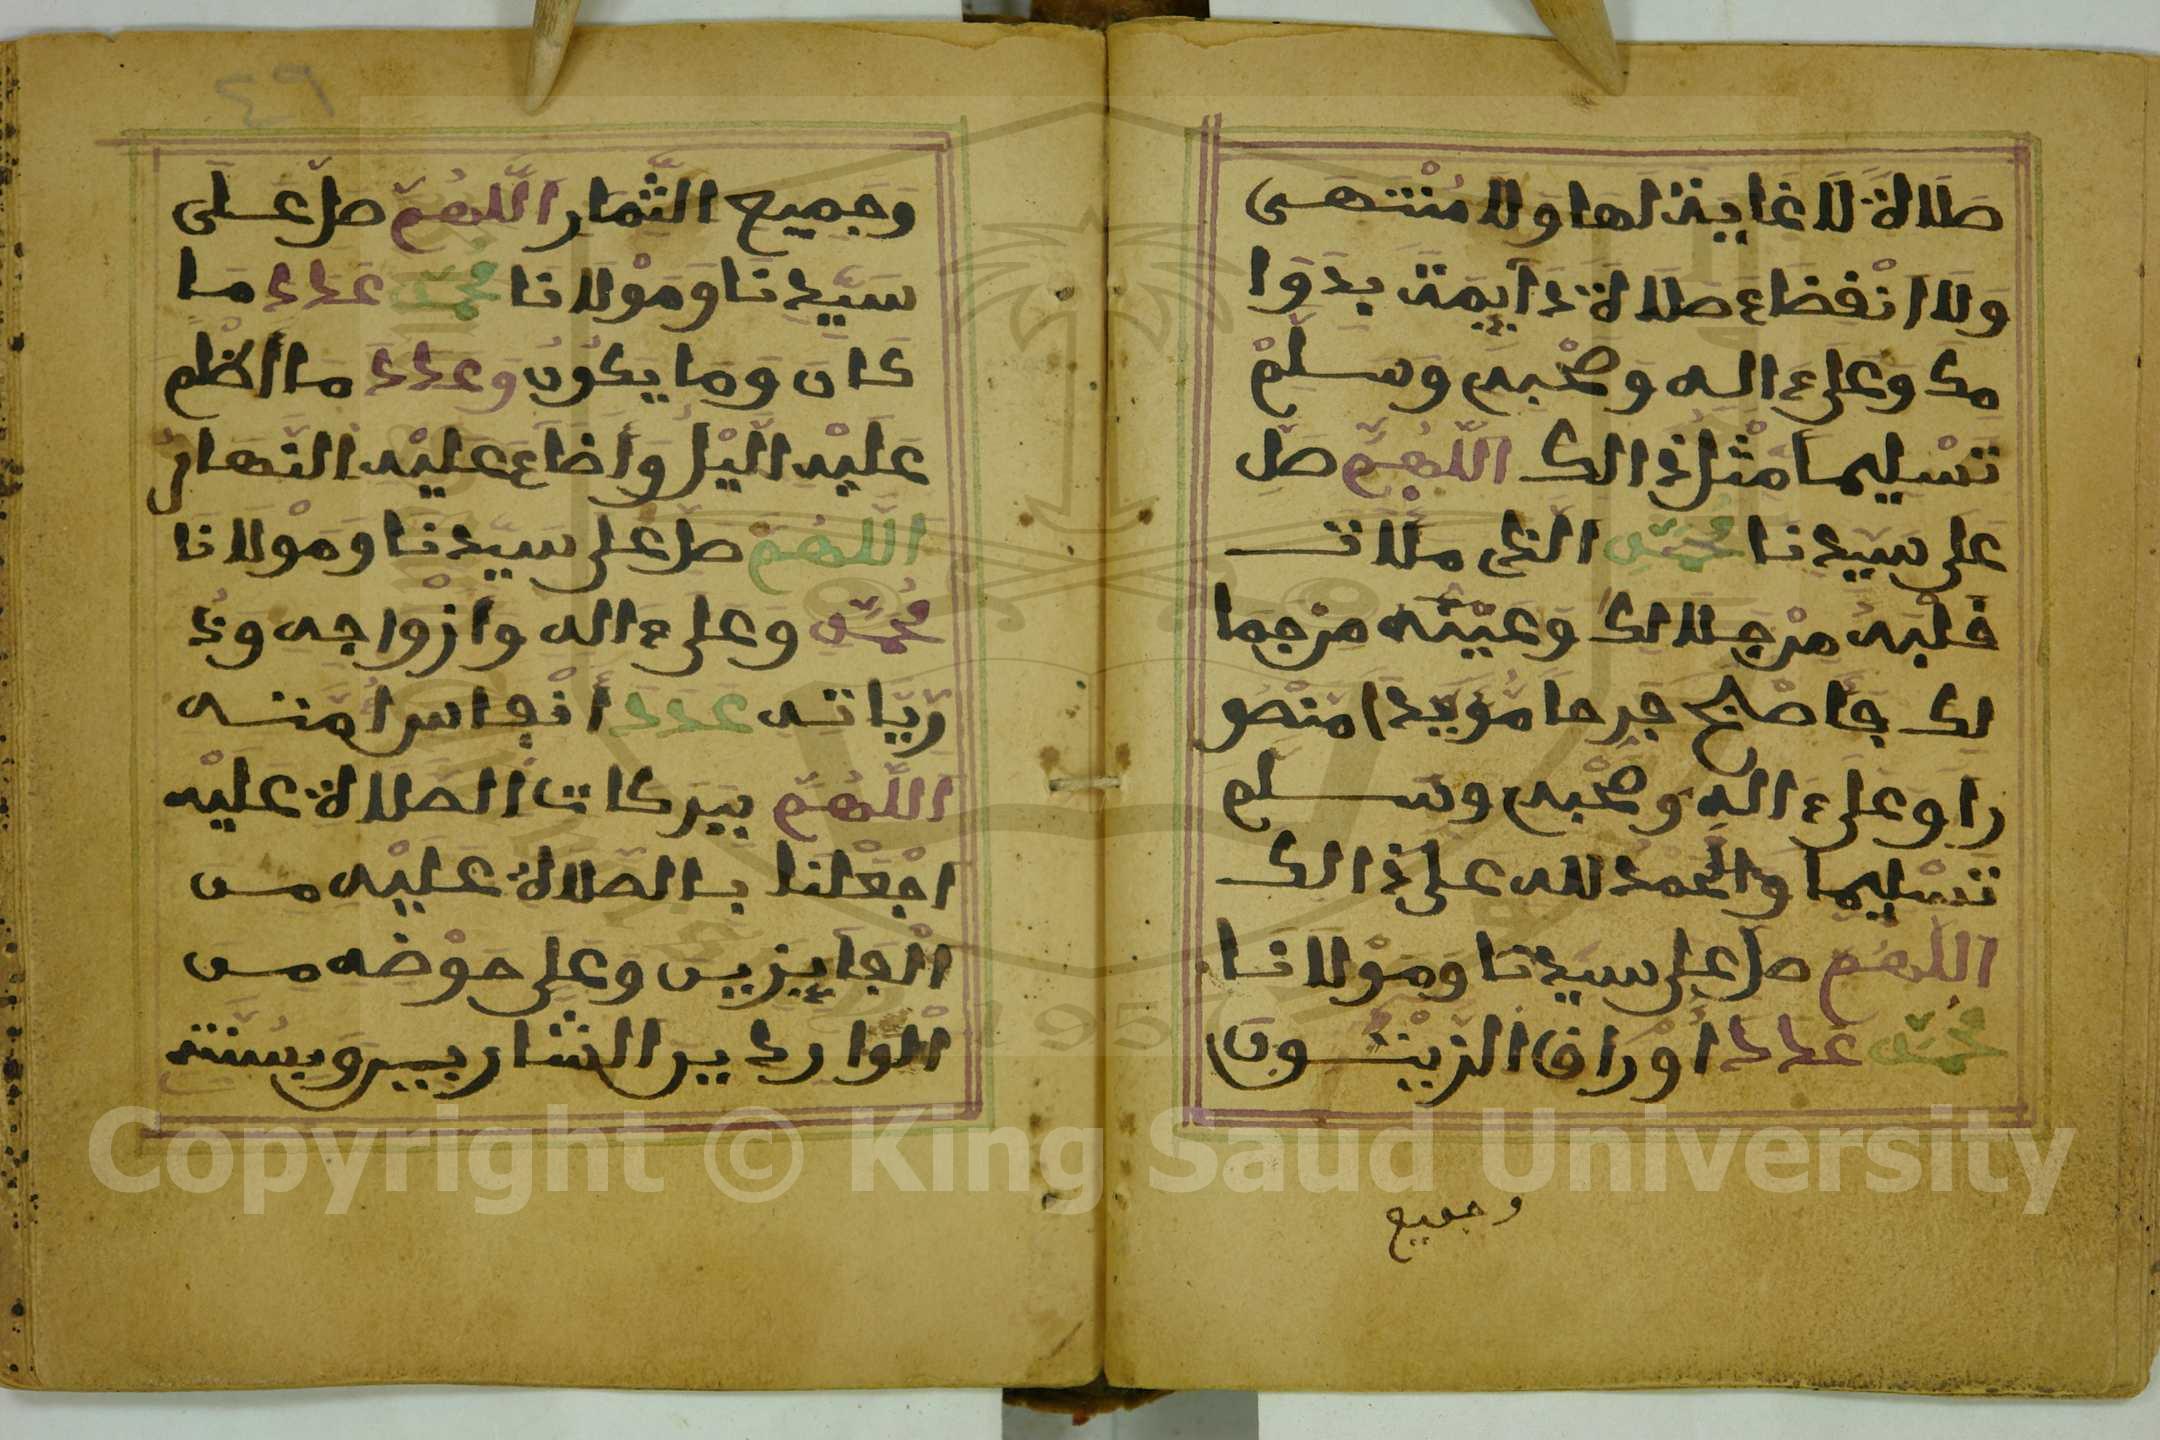 صَلَاةً لَا غَايَةَ لَهَا وَلَا مُنْتَهَى
وَلَا انْقِضَاءَ صَلَاةً دَايِمَةً بِدَوَا
مِكَ وَعَلَى ءَالِهِ وَصَحْبِهِ وَسَلِّمْ
تَسْلِيمًا مِثْلَ ذَالِكَ اللَّهُمَّ صَلِّ
عَلَى سَيِّدِنَا مُحَمَّدٍ الَّذِي مَلَأْتَ
قَلْبَهُ مِنْ جَلَالِكَ وَعَيْنَهُ مِنْ جَمَا
لِكَ فَأَصْبَحَ فَرِحًا مُؤَيَّدًا مَنْصُو
رًا وَعَلَى ءَالِهِ وَصَحْبِهِ وَسَلِّمْ
تَسْلِيمًا وَالْحَمْدُ لِلَّهِ عَلَى ذَالِكَ
اللَّهُمَّ صَلِّ عَلَى سَيِّدِنَا وَمَوْلَانَا
مُحَمَّدٍ عَدَدَ أَوْرَاقِ الزَّيْتُونِ
وجميع
٤٩
وَجَمِيعِ الثِّمَارِ اللَّهُمَّ صَلِّ عَلَى
سَيِّدِنَا وَمَوْلَانَا مُحَمَّدٍ عَدَدَ مَا
كَانَ وَمَا يَكُونُ وَعَدَدَ مَا أَظْلَمَ
عَلَيْهِ الَّيْلُ وَأَضَاءَ عَلَيْهِ النَّهَارُ
اللَّهُمَّ صَلِّ عَلَى سَيِّدِنَا وَمَوْلَانَا
مُحَمَّدٍ وَعَلَى ءَالِهِ وَأَزْوَاجِهِ وَذُ
رِّيَّاتِهِ عَدَدَ أَنْفَاسِ أُمَّتِهِ
اللَّهُمَّ بِبَرَكَاتِ الصَّلَاةِ عَلَيْهِ
اجْعَلْنَا بِالصَّلَاةِ عَلَيْهِ مِنَ
الْفَايِزِينَ وَعَلَى حَوْضِهِ مِنَ
الْوَارِدِينَ الشَّارِبِينَ وَبِسُنَّتِهِ
Copyright © King Saud University
1957